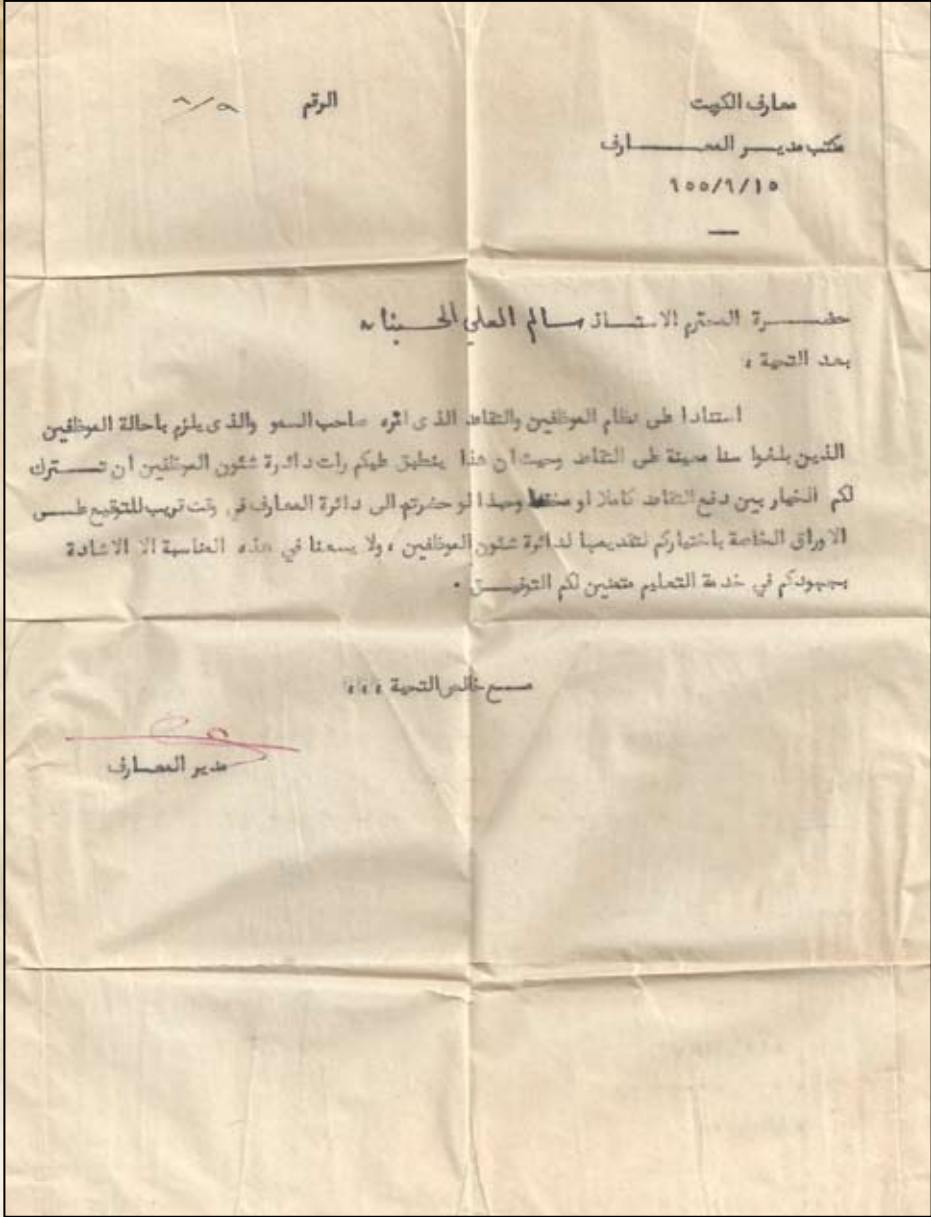 معارف الكويت
الرقم ٨/٥
مكتب مديـــر المعـــــارف
٩٥٥/٦/١٥
حضـــــرة المحترم الاستــــاذ ســالم العلي الحسينان
بعد التحية ،
استنادا على نظام الموظفين والتقاعد الذى اقره صاحب السمو والذى يلزم باحالة الموظفين
الذين بلغوا سنا معينة على التقاعد وحيث ان هذا ينطبق عليكم رات دائرة شئون الموظفين ان تـــترك
لكم الخيار بين دفع التقاعد كاملا او وحبذا لو حضرتم الى دائرة المعارف في وقت قريب للتوقيع علـــى
الاوراق الخاصة باختياركم لتقديمها لدائرة شئون الموظفين ، ولا يسعنا في هذه المناسبة الا الاشادة
بجهودكم في خدمة التعليم متمنين لكم التوفيـــق ٠
مـــع خالص التحية ،،،
مدير المعـــارف